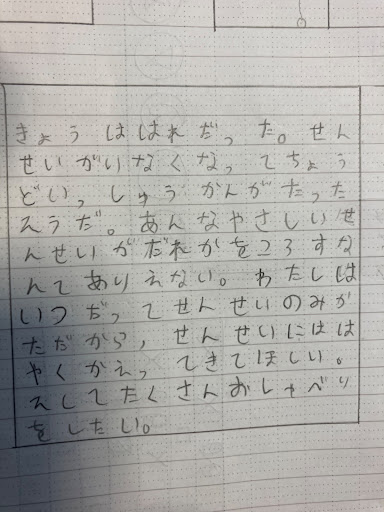 きょう ははれだった。せん
せいがいなくなってちょう
どいっしゅうかんがたった
そうだ。あんなやさしいせ
んせいがだれかをころすな
んてありえない。わたしは
いつだってせんせいのみか
ただから，せんせいにはは
やくかえってきてほしい。
そしてたくさんおしゃべり
をしたい。